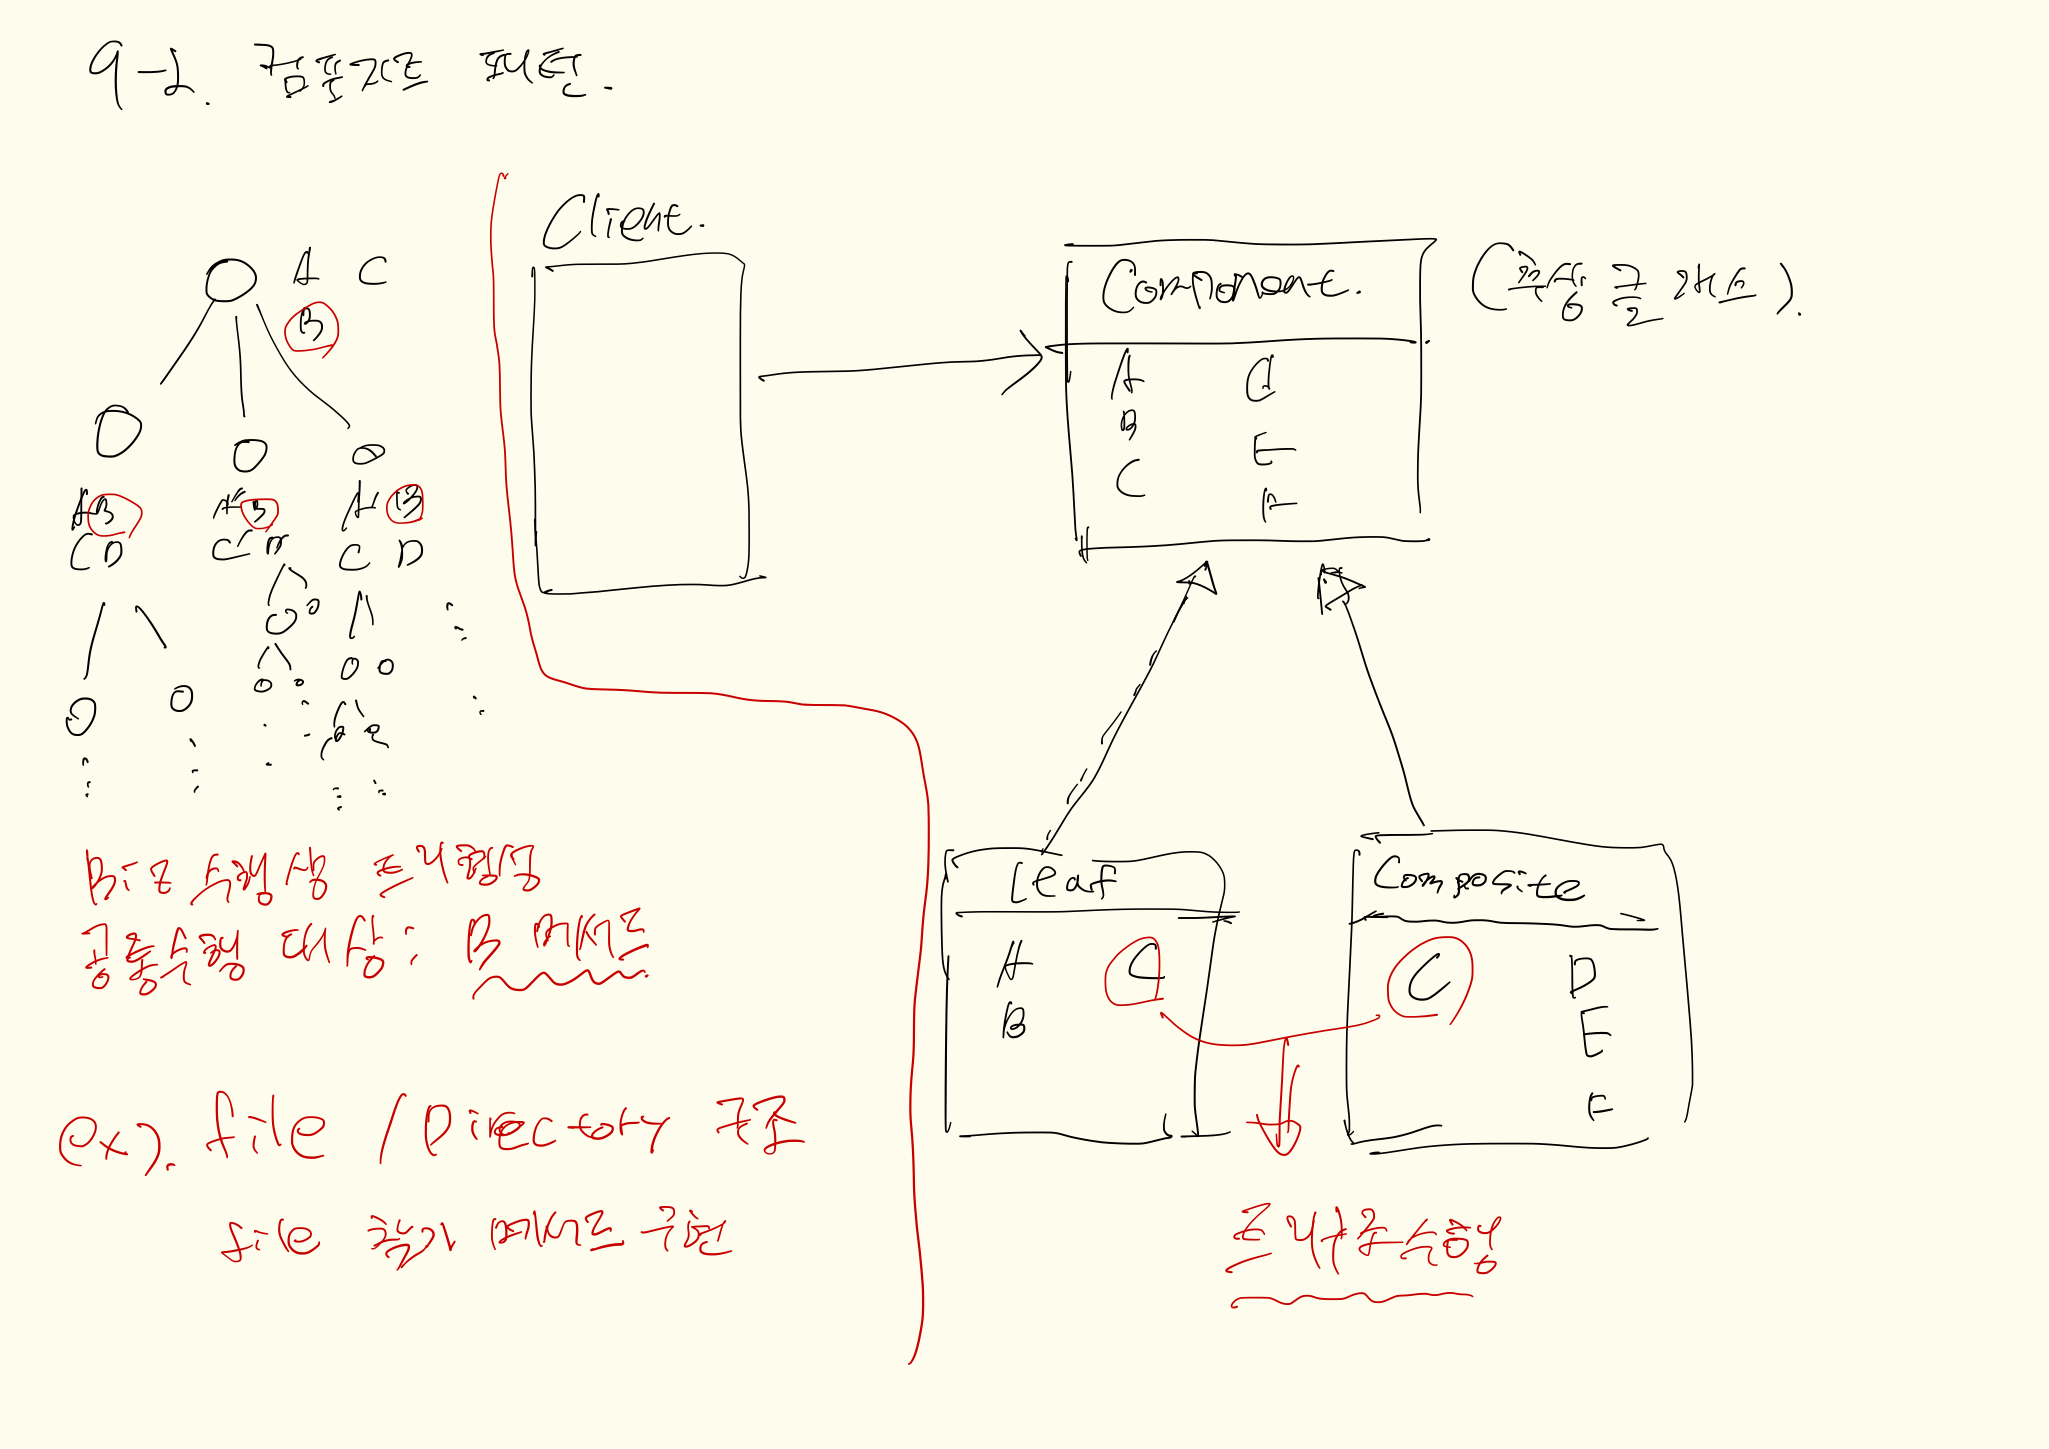 9-2. 컴포지트 패턴.
A C
B
A B
C D
A B
C D
A B
C D
Biz 수행상 트리형성
공통수행 대상: B 메서드
ex). file / Directory 구조
file 찾기 메서드 구현
Client.
Component.
(추상 클래스).
A
B
C
D
E
F
Leaf
A C
B
Composite
C D
E
F
트리구조수행